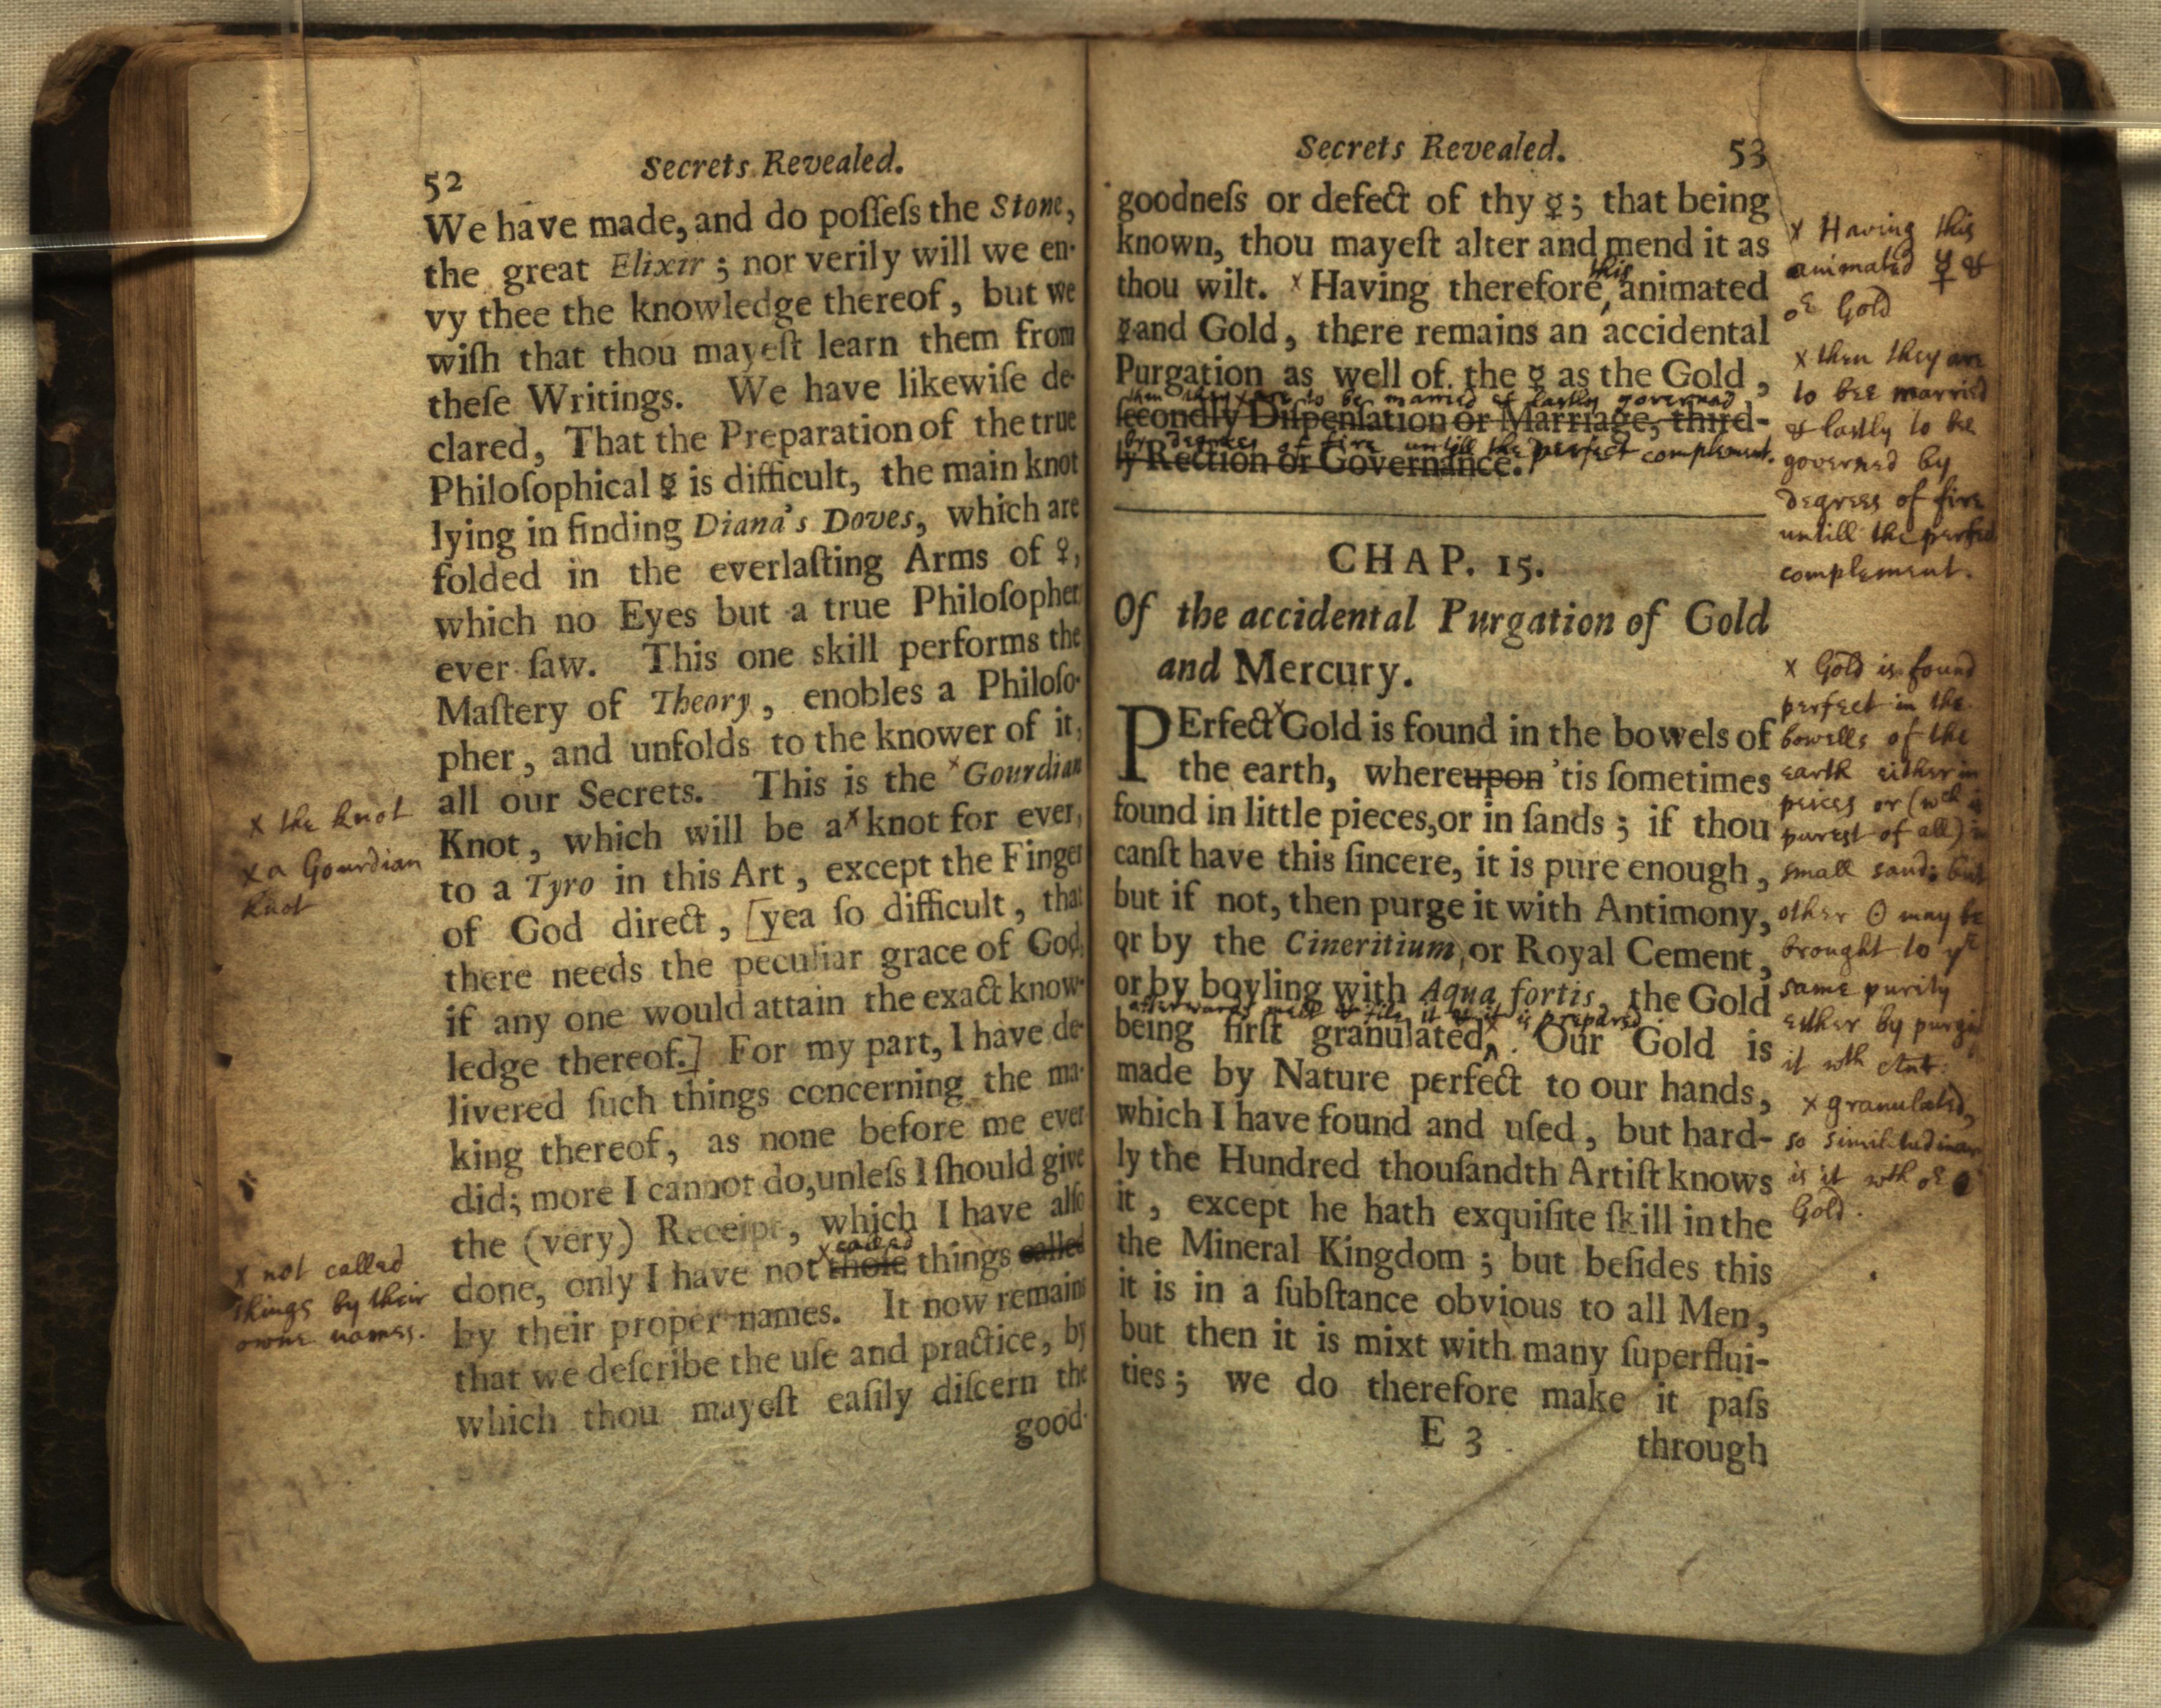 52 Secrets Revealed.
We have made, and do poſſeſs the Stone,
the great Elixir ; nor verily will we en-
vy thee the knowledge thereof, but we
wiſh that thou mayeſt learn them from
theſe Writings. We have likewiſe de-
clared, That the Preparation of the true
Philoſophical ☿ is difficult, the main knot
lying in finding Diana's Doves, which are
folded in the everlaſting Arms of ♀,
which no Eyes but a true Philoſopher
ever ſaw. This one skill performs the
Maſtery of Theory, enobles a Philoſo-
pher, and unfolds to the knower of it,
all our Secrets. This is the x Gourdian
Knot, which will be a x knot for ever,
to a Tyro in this Art, except the Finger
of God direct, [yea ſo difficult, that
there needs the peculiar grace of God,
if any one would attain the exact know-
ledge thereof.] For my part, I have de-
livered ſuch things concerning the ma-
king thereof, as none before me ever
did; more I cannot do, unleſs I ſhould give
the (very) Receipt, which I have alſo
x called
done, only I have not thoſe things called
by their proper names. It now remains
that we deſcribe the uſe and practice, by
which thou mayeſt eaſily diſcern the
good-
x the knot
x a Gourdian
knot
x not called
things by their
owne names.
Secrets Revealed. 53
goodneſs or defect of thy ☿; that being
known, thou mayeſt alter and mend it as
this
thou wilt. x Having therefore, animated
☿ and Gold, there remains an accidental
Purgation as well of the ☿ as the Gold,
then they are to be married & laſtly governed
ſecondly Diſpenſation or Marriage, third-
by degrees of fire untill the perfect complement.
ly Rection or Governance.
CHAP. 15.
Of the accidental Purgation of Gold
and Mercury.
PErfect x Gold is found in the bowels of
the earth, whereupon 'tis ſometimes
found in little pieces, or in ſands ; if thou
canſt have this ſincere, it is pure enough,
but if not, then purge it with Antimony,
or by the Cineritium, or Royal Cement,
or by boyling with Aqua fortis, the Gold
afterwards melt & file it & it is prepared
being firſt granulated, x. Our Gold is
made by Nature perfect to our hands,
which I have found and uſed, but hard-
ly the Hundred thouſandth Artiſt knows
it, except he hath exquiſite ſkill in the
the Mineral Kingdom ; but beſides this
it is in a ſubſtance obvious to all Men,
but then it is mixt with many ſuperflui-
ties ; we do therefore make it paſs
E 3 through
x Having this
animated ☿ &
Gold
x then they are
to bee married
& lastly to be
governed by
degrees of fire
untill the perfect
complement.
x Gold is found
perfect in the
bowells of the
earth either in
peices or (wch is
purest of all) in
small sand: but
other ☉ may be
brought to ye
same purity
either by purging
it wth Ant:
x granulated,
so
is it wth
Gold.